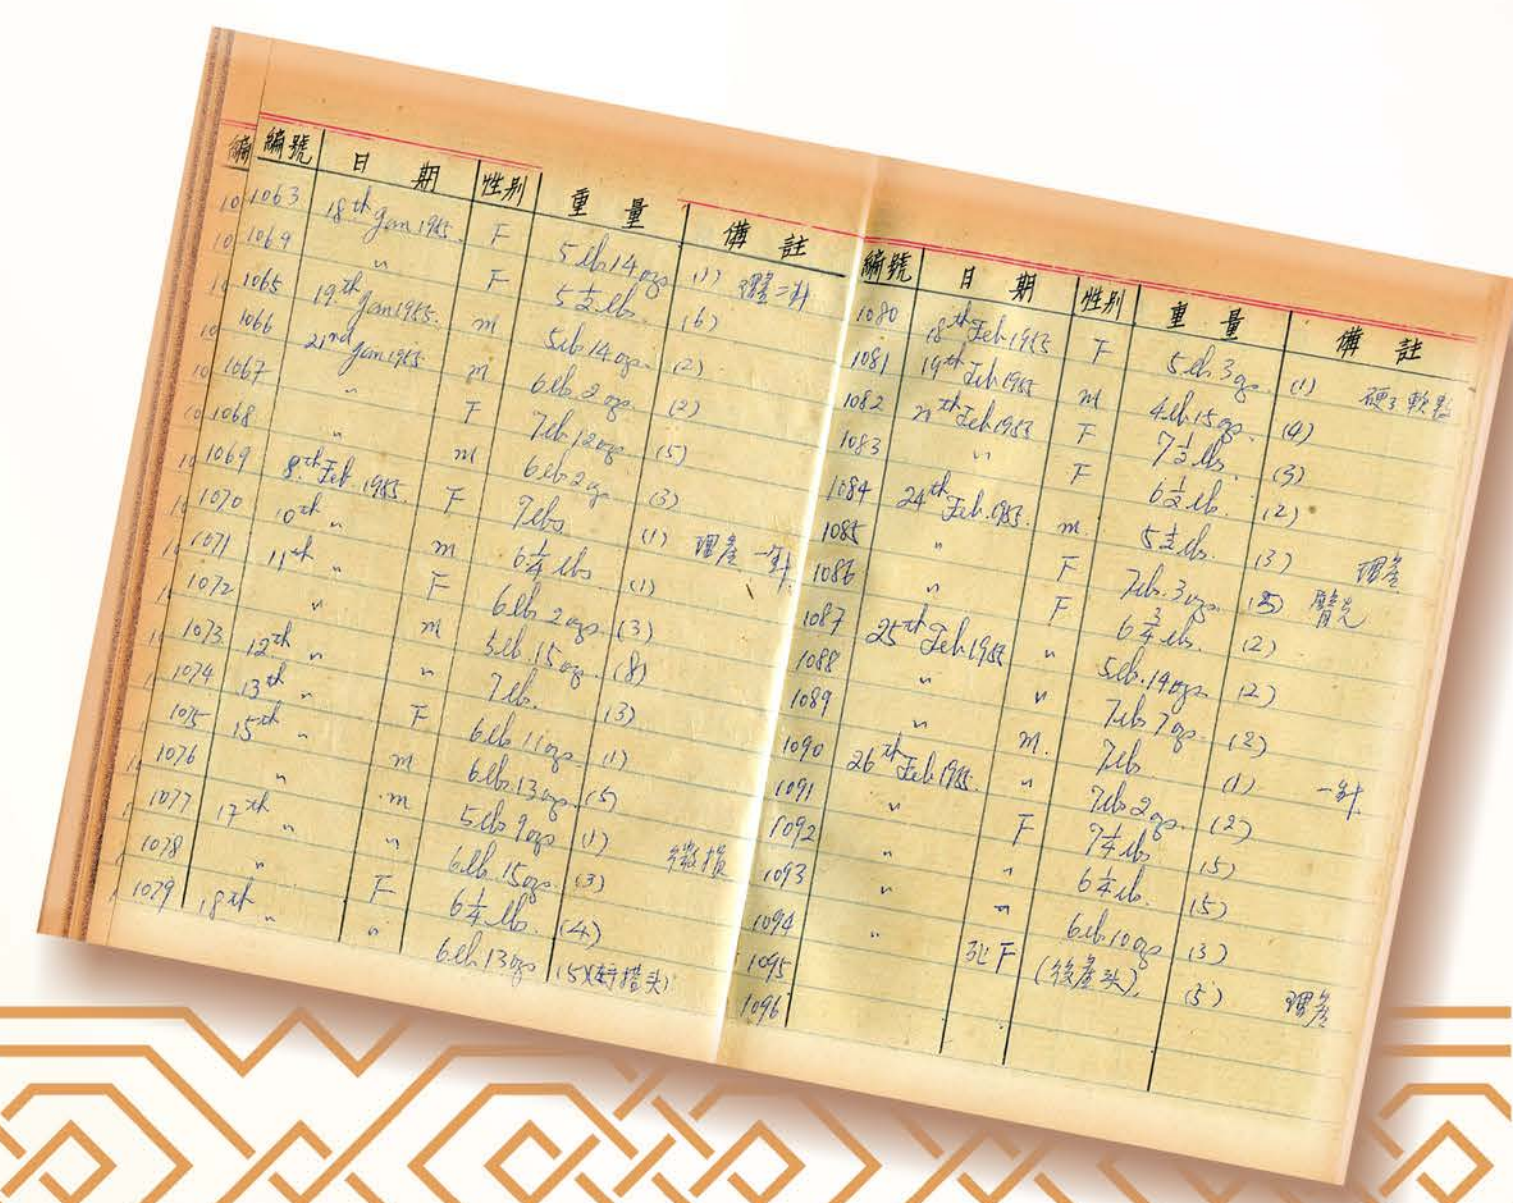 編號 日期 性别 重量 備註
1063 18th Jan 1955. F 5 lb 14 ozs (1) 二針
1064 " F 5½ lbs. (6)
1065 19th Jan 1955. m 5 lb 14 ozs. (2)
1066 21nd Jan 1955 m 6 lb. 2 ozs. (2)
1067 " F 7 lb 12 ozs (5)
1068 " m 6 lb 2 oz (3)
1069 8th Feb. 1955. F 7 lbs (1) 理產 一針
1070 10th " m 6¼ lbs (1)
1071 11th " F 6 lb 2 ozs (3)
1072 " m 5 lb. 15 ozs. (8)
1073 12th " " 7 lb. (3)
1074 13th " F 6 lb 11 ozs. (1)
1075 15th " m 6 lb. 13 ozs. (5)
1076 " m 5 lb 9 ozs (1) 微損
1077 17th " " 6 lb. 15 ozs. (3)
1078 " F 6¼ lbs. (4)
1079 18th " " 6 lb 13 ozs (5)
編號 日期 性别 重量 備註
1080 18th Feb 1955 F 5 lb. 3 ozs. (1)
1081 19th Feb 1955 m 4 lb 15 ozs. (4)
1082 Feb 1955 F 7½ lbs. (3)
1083 " F 6½ lb. (2)
1084 24th Feb. 1955. m. 5½ lbs. (3) 理產
1085 " F 7 lb. 3 ozs. (5) 臀先
1086 " F 6¾ lbs. (2)
1087 25th Feb 1955 " 5 lb. 14 ozs. (2)
1088 " " 7 lbs 7 ozs. (2)
1089 " m. 7 lb (1) 一針
1090 26th Feb 1955. " 7 lb 2 ozs. (2)
1091 " F 7¼ lbs (5)
1092 " " 6¼ lb. (5)
1093 " " 6 lb 10 ozs (3)
1094 " 死 F (後產头). (5) 理產
1095
1096